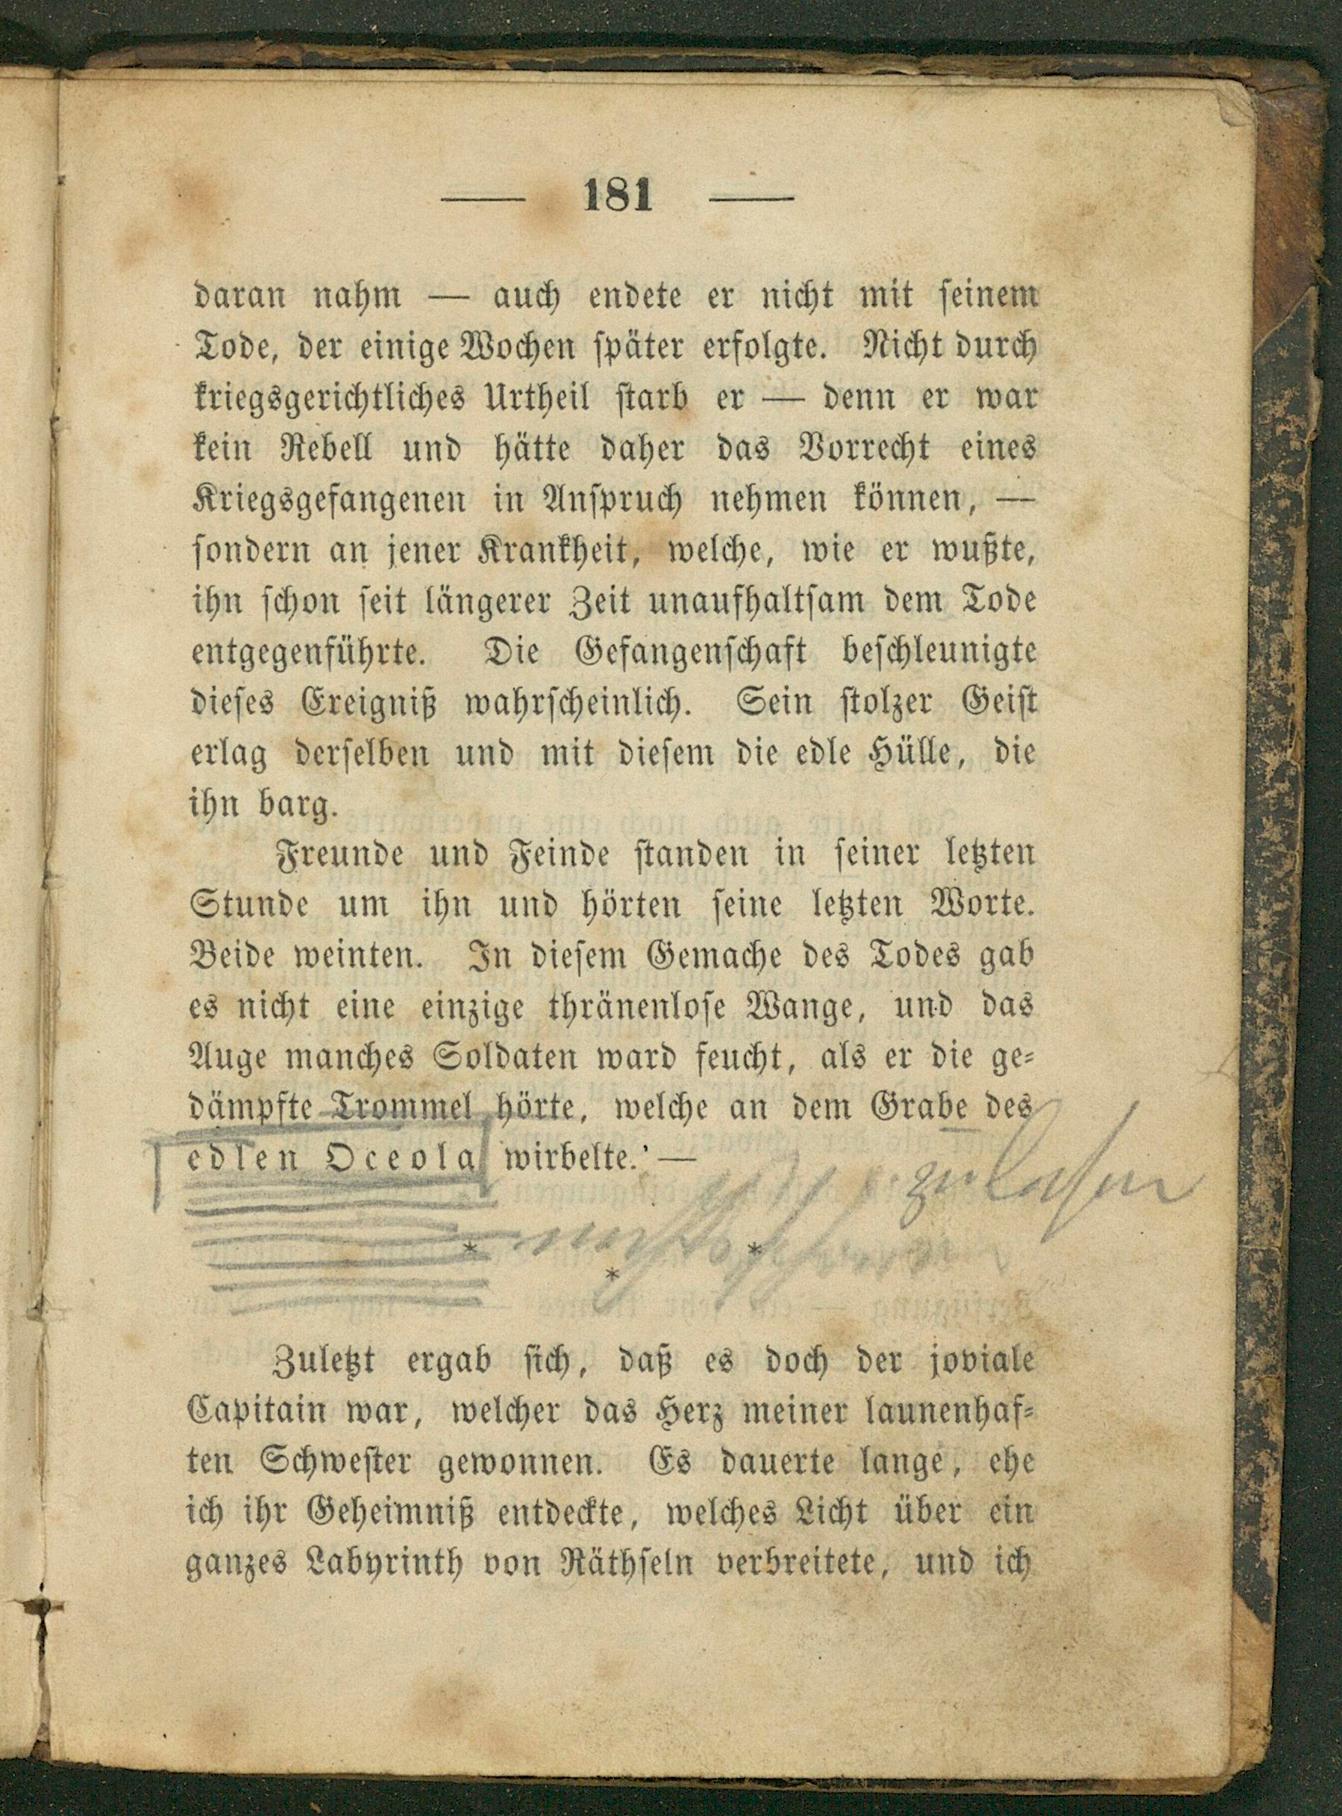 — 181 —
daran nahm — auch endete er nicht mit seinem
Tode, der einige Wochen später erfolgte. Nicht durch
kriegsgerichtliches Urtheil starb er — denn er war
kein Rebell und hätte daher das Vorrecht eines
Kriegsgefangenen in Anspruch nehmen können, —
sondern an jener Krankheit, welche, wie er wußte,
ihn schon seit längerer Zeit unaufhaltsam dem Tode
entgegenführte. Die Gefangenschaft beschleunigte
dieses Ereigniß wahrscheinlich. Sein stolzer Geist
erlag derselben und mit diesem die edle Hülle, die
ihn barg.
Freunde und Feinde standen in seiner letzten
Stunde um ihn und hörten seine letzten Worte.
Beide weinten. In diesem Gemache des Todes gab
es nicht eine einzige thränenlose Wange, und das
Auge manches Soldaten ward feucht, als er die ge-
dämpfte Trommel hörte, welche an dem Grabe des
edlen Oceola wirbelte. —
zu lesen
* * *
Zuletzt ergab sich, daß es doch der joviale
Capitain war, welcher das Herz meiner launenhaf-
ten Schwester gewonnen. Es dauerte lange, ehe
ich ihr Geheimniß entdeckte, welches Licht über ein
ganzes Labyrinth von Räthseln verbreitete, und ich